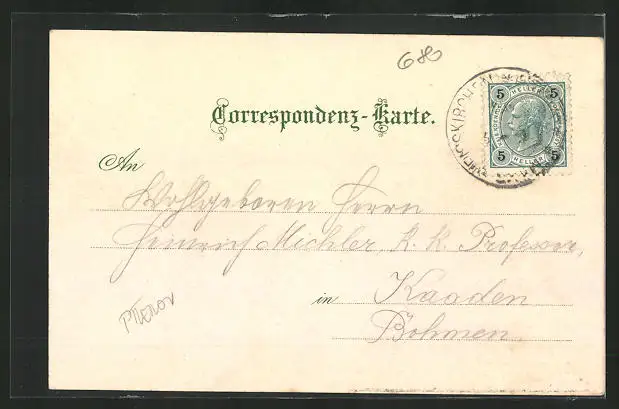 680
5 5
HELLER
5 5
HELLER
Correspondenz-Karte.
An
Wohlgeboren Herrn
Heinrich Michler, K. K. Professor,
in Kaaden
Böhmen.
PŘEROV